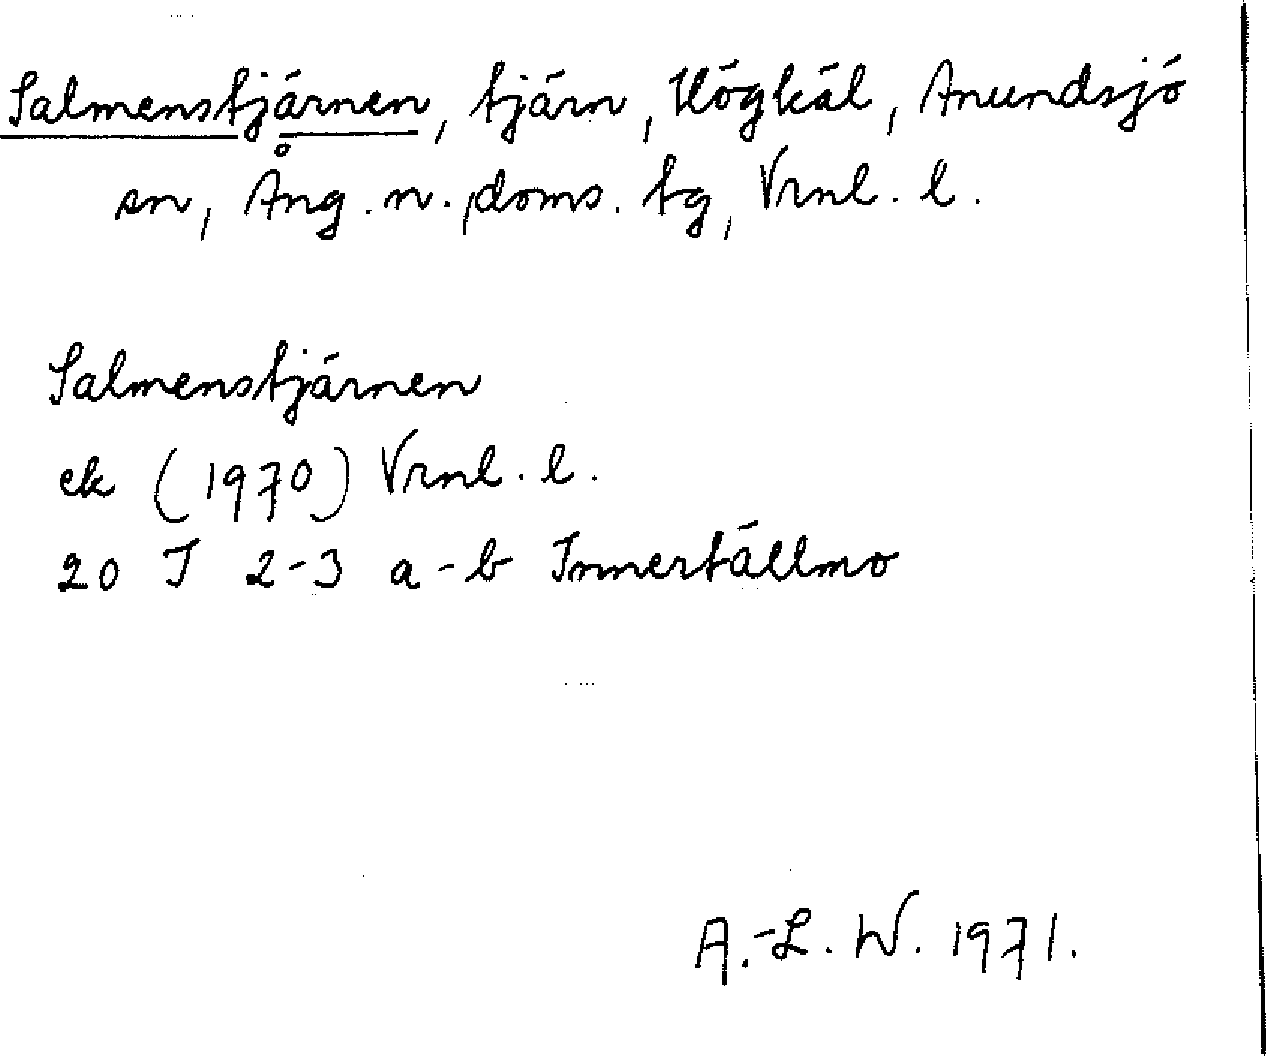 Salmenstjärnen, tjärn, Högkäl, Anundsjö
sn, Ång. n. doms. tg, Vrnl. l.
Salmenstjärnen
ek (1970) Vrnl. l.
20 I 2-3 a-b Innertällmo
A.-L. W. 1971.